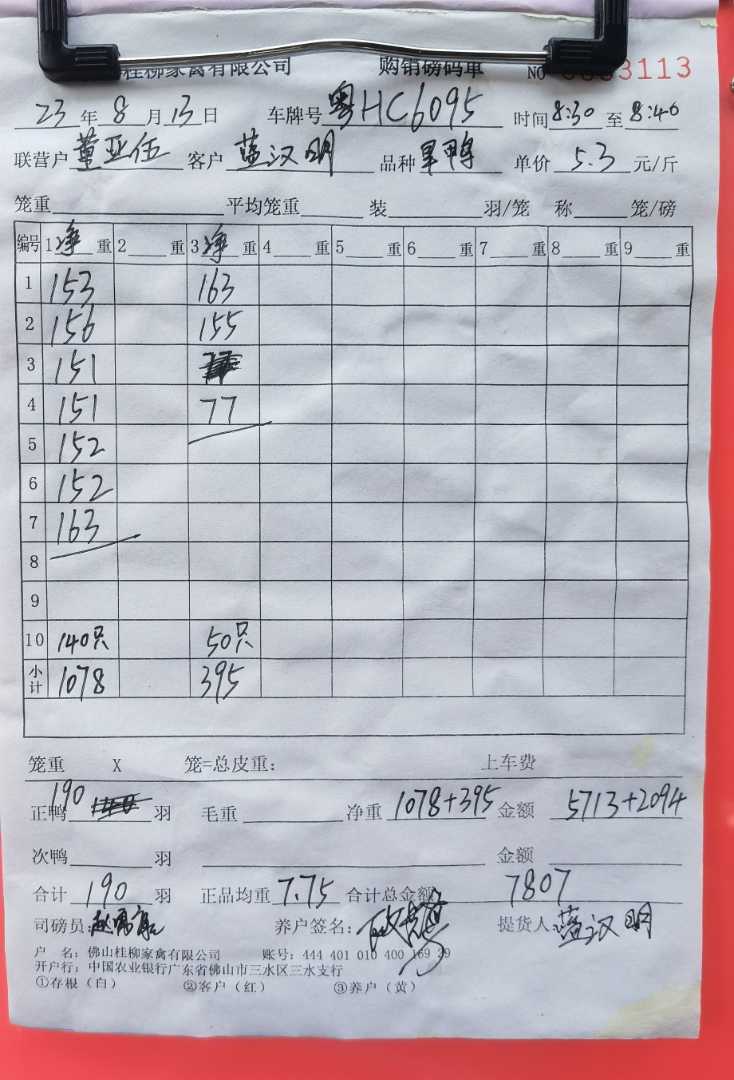 桂柳家禽有限公司 购销磅码单 NO 3113
23年8月13日 车牌号粤HC6095 时间8:30至8:40
联营户董亚伍 客户蓝汉明 品种旱鸭 单价5.3元/斤
笼重 平均笼重 装 羽/笼 称 笼/磅
编号 1净重 2 重 3净重 4 重 5 重 6 重 7 重 8 重 9 重
1 153 163
2 156 155
3 151
4 151 77
5 152
6 152
7 163
8
9
10 140只 50只
小计 1078 395
笼重 X 笼=总皮重: 上车费
正鸭190羽 毛重 净重1078+395 金额5713+2094
次鸭 羽 金额
合计190羽 正品均重7.75 合计总金额7807
司磅员: 养户签名: 提货人蓝汉明
户 名:佛山桂柳家禽有限公司 账号:444 401 010 400 169 29
开户行:中国农业银行广东省佛山市三水区三水支行
①存根(白) ②客户(红) ③养户(黄)